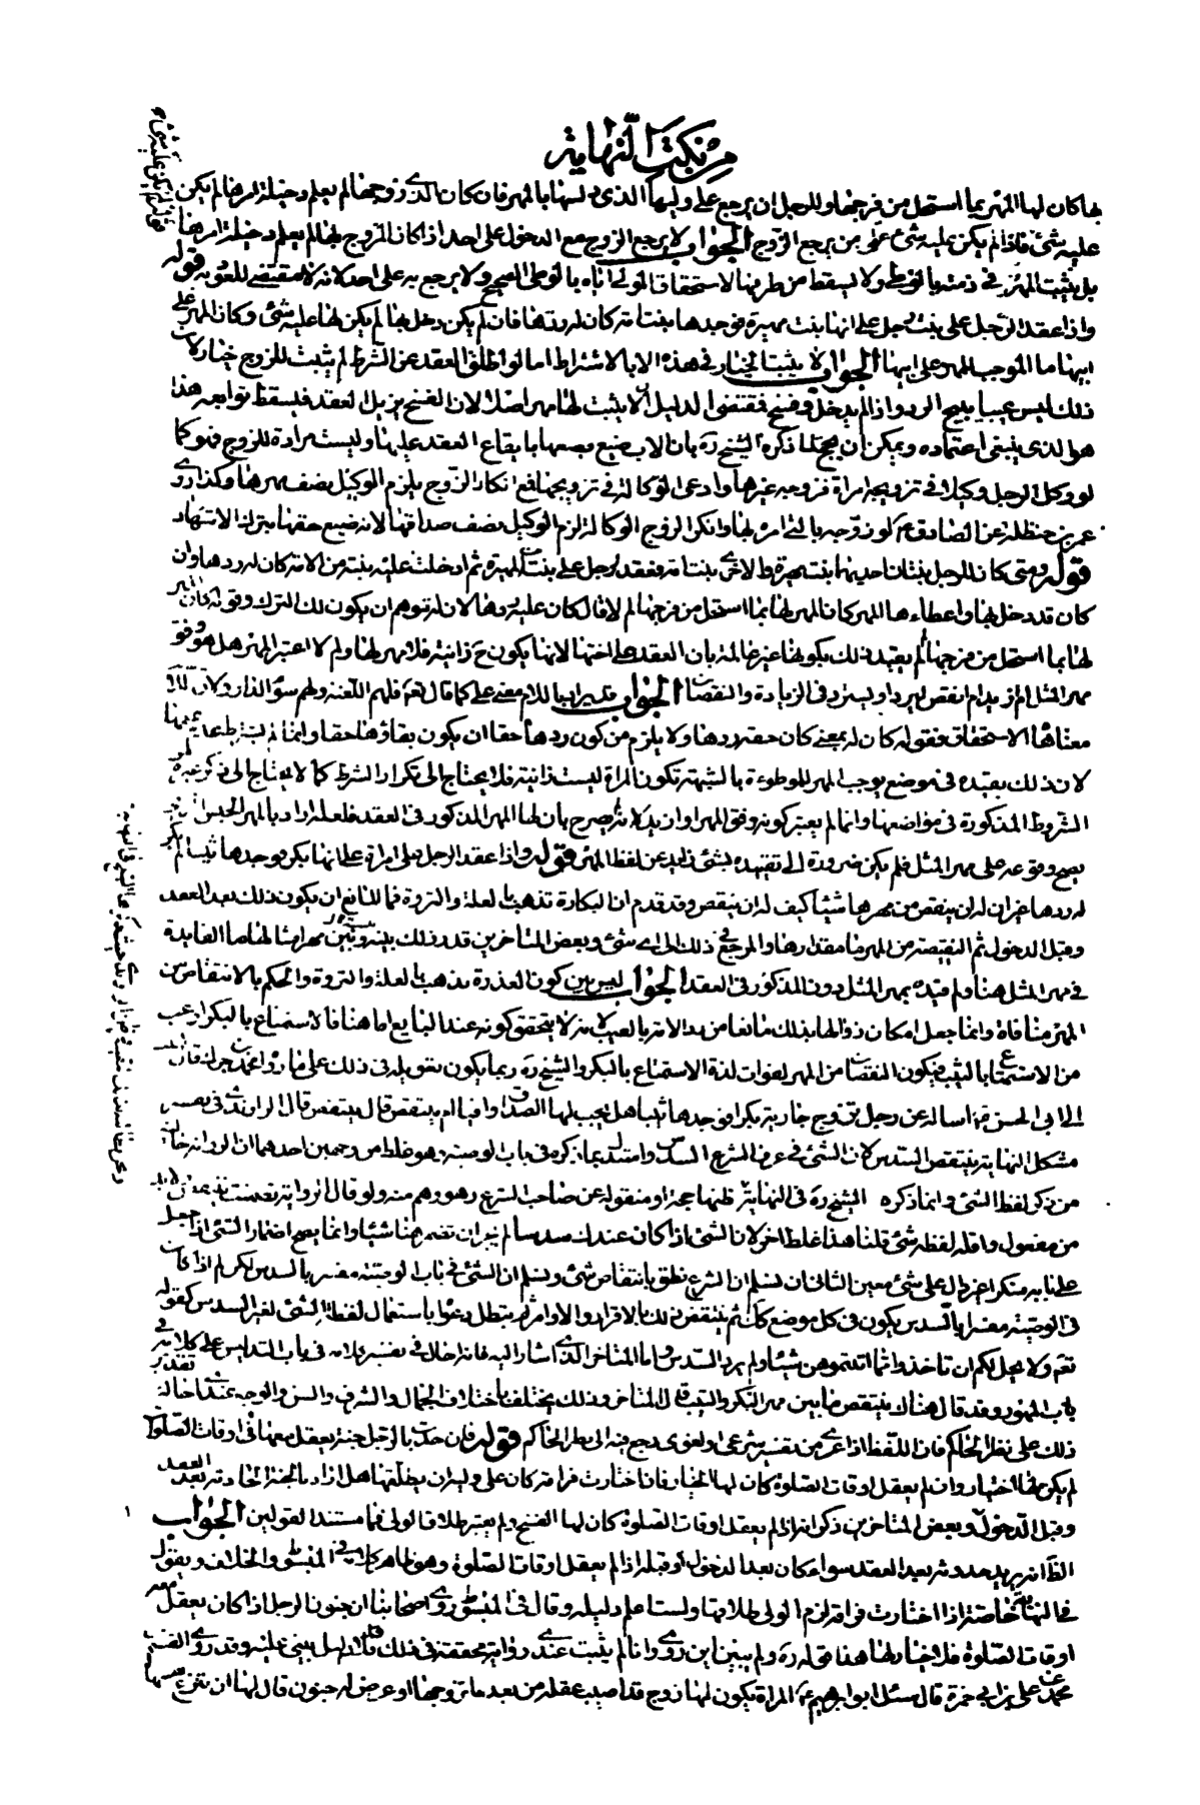 من نكت النهاية
بها كان لها المهر بما استحل من فرجها وللرجل ان يرجع على وليها الذى دلسها بالمهر فان كان الذى زوجها لم يعلم دخيلة امرها لم يكن
عليه شئ فاذا لم يكن عليه شئ على من يرجع الزوج الجواب لا يرجع الزوج مع الدخول على احد اذا كان المزوج لها لم يعلم دخيلة امرها
بل يثبت المهر في ذمته بالوطى ولا يسقط من طرفها لاستحقاق المولى اياه بالوطى الصحيح ولا يرجع به على احد لانه لا مقتضى للعقوبة قوله
واذا عقد الرجل على بنت رجل على انها بنت مهيرة فوجدها بنت امة كان له ردها فان لم يكن دخل بها لم يكن لها عليه شئ وكان المهر على
ابيها ما الموجب للمهر على ابيها الجواب لا يثبت الخيار في هذه الا بالاشتراط اما لو اطلق العقد عن الشرط لم يثبت للزوج خيار لان
ذلك ليس عيبا يبيح الرد واذا لم يدخل وفسخ فمقتضى الدليل ان لا يثبت لها مهر اصلا لان الفسخ يزيل العقد فيسقط توابعه هذا
هو الذى ينبغى اعتماده ويمكن ان يحتج لما ذكره الشيخ ره بان الاب ضيع بضعها بايقاع العقد عليها وليست مرادة للزوج فهو كما
لو وكل الرجل وكيلا فى تزويجه امراة فزوجه غيرها وادعى الوكالة فى تزويجها مع انكار الزوج يلزم الوكيل نصف مهرها وكذا روى
عمر بن حنظلة عن الصادق ع لو زوجه بالتى امره لها وانكر الزوج الوكالة لزم الوكيل نصف صداقها لانه ضيع حقها بترك الاشهاد
قوله ومتى كان للرجل بنتان احديهما بنت مهيرة والاخرى بنت امة فعقد لرجل على بنت المهيرة ثم ادخلت عليه بنته من الامة كان له ردها وان
كان قد دخل بها واعطاءها المهر كان المهر لها بما استحل من فرجها لم لا قال كان عليه ردها لان له توهم ان يكون له الترك وقوله كان المهر
لها بما استحل من فرجها لم لم يقيد ذلك بكونها غير عالمة بان العقد على اختها لانها يكون ح زانية فلا مهر لها ولم لا اعتبر المهر هل هو وفق
مهر المثل ام ازيد ام انقص ليرد او يسترد فى الزيادة والنقصان الجواب
معناها الاستحقاق فقوله كان له بمعنى كان حقه ردها ولا يلزم من كون ردها حقا ان يكون بقاؤها حقا وانما لم يشترط عدم علمها
لان ذلك يقيده فى موضع يوجب المهر للموطوءة بالشبهة تكون المراة ليست زانية فلا يحتاج الى تكرار الشرط كما لا يحتاج الى ذكر غيره
الشروط المذكورة فى مواضعها وانما لم يعتبر كونه وفق المهر او ازيد لانه لم يصرح بان لها المهر المذكور فى العقد فلعله اراد بالمهر الجنس
يصح وقوعه على مهر المثل فلم يكن ضرورة الى تقييده بشئ زايد عن لفظ المهر قوله واذا عقد الرجل على امراة على انها بكر فوجدها ثيبا لم
له ردها غير ان له ان ينقص من مهرها شيئا كيف له ان ينقص وقد قدم ان البكارة تذهب بالعلة والنزوة فما المانع ان يكون ذلك بعد العقد
وقبل الدخول ثم النقيصة من المهر ما مقدارها والمرجع فى ذلك الى اى شئ وبعض المتاخرين قدر ذلك بينه وبين مهر امثالها ما الفايدة
فى مهر المثل هنا ولم قيده بمهر المثل دون المذكور فى العقد الجواب ليس بين كون العذرة تذهب بالعلة والنزوة والحكم بالانتقاص من
المهر منافاة وانما جعل امكان زوالها بذلك مانعا من رد الامة بالعيب لانه لا يتحقق كونه عند البايع اما هنا فالاستمتاع بالبكر ارغب
من الاستمتاع بالثيب فيكون النقصان من المهر لفوات لذة الاستمتاع بالبكر والشيخ ره ربما يكون تعويله فى ذلك على ما رواه محمد بن جزك قال كتبت
الى ابى الحسن ع اساله عن رجل تزوج جارية بكرا فوجدها ثيبا هل يجب لها الصداق وافيا ام ينتقص قال ينتقص قال الراوندى فى تفسير
مشكل النهاية ينتقص السدس لان الشئ فى عرف الشرع السدس واستدل بما ذكره فى باب الوصية وهو غلط من وجهين احدهما ان الرواية خالية
من ذكر لفظ الشئ وانما ذكره الشيخ ره فى النهاية ظنها حجة او منقوله عن صاحب الشرع وهو وهم منه ولو قال الرواية تضمنت
من مفعول واقله لفظه شئ قلنا هذا غلط اخر لان الشئ اذا كان عندك سدسا لم يجز ان تضمر هنا شيئا وانما يصح اضمار الشئ اذا جعل
الثانى ان نسلم ان الشرع نطق بانتقاص شئ ونسلم ان الشئ فى باب الوصية مفسر بالسدس لكن لم اذا كان
فى الوصية مفسرا بالسدس يكون فى كل موضع كذلك ثم ينتقض ذلك بالاقرار والاوامر ثم يبطل دعواه باستعمال لفظة الشئ لغير السدس كقوله
تعم ولا يحل لكم ان تاخذوا مما اتيتموهن شيئا ولم يرد السدس واما المتاخر الذى اشار اليه فانه احال فى تفسير كلامه فى باب التدليس على كلامه فى
باب المهور وقد قال هناك ينتقص ما بين مهر البكر والثيب قال المتاخر وذلك يختلف باختلاف الجمال والشرف والسن والوجه عندنا احالة تقدير
ذلك على نظر الحاكم فان اللفظ اذا عرى من تفسير شرعى او لغوى رجع فيه الى نظر الحاكم قوله فان حدث بالرجل جنة يعقل معها فى اوقات الصلوة
لم يكن لها اختيار وان لم يعقل اوقات الصلوة كان لها الخيار فان اختارت فراقه كان على وليه ان يطلقها هل اراد بالجنة الحادثة بعد العقد
وقبل الدخول وبعض المتاخرين ذكر انه اذا لم يعقل اوقات الصلوة كان لها الفسخ ولم يعتبر طلاق الولى فما مستند القولين الجواب
الظاهر انه يريد حدوثه بعد العقد سواء كان بعد الدخول او قبله اذا لم يعقل اوقات الصلوة وهو ظاهر كلامه فى المبسوط والخلاف ويقول
فى النهاية خاصة اذا اختارت فراقه لزم الولى طلاقها ولست اعلم دليله وقال فى المبسوط روى اصحابنا ان جنون الرجل اذا كان يعقل معه
اوقات الصلوة فلا خيار لها هذا قوله ره ولم يبين اين روى وانا لم يثبت عندى رواية محققة فى ذلك يبنى عليه وقد روى الفسخ
محمد عن على بن ابى حمزة قال سئل ابو ابرهيم ع المراة يكون لها زوج قد اصيب عقله من بعد ما تزوجها او عرض له جنون قال لها ان تنزع نفسها